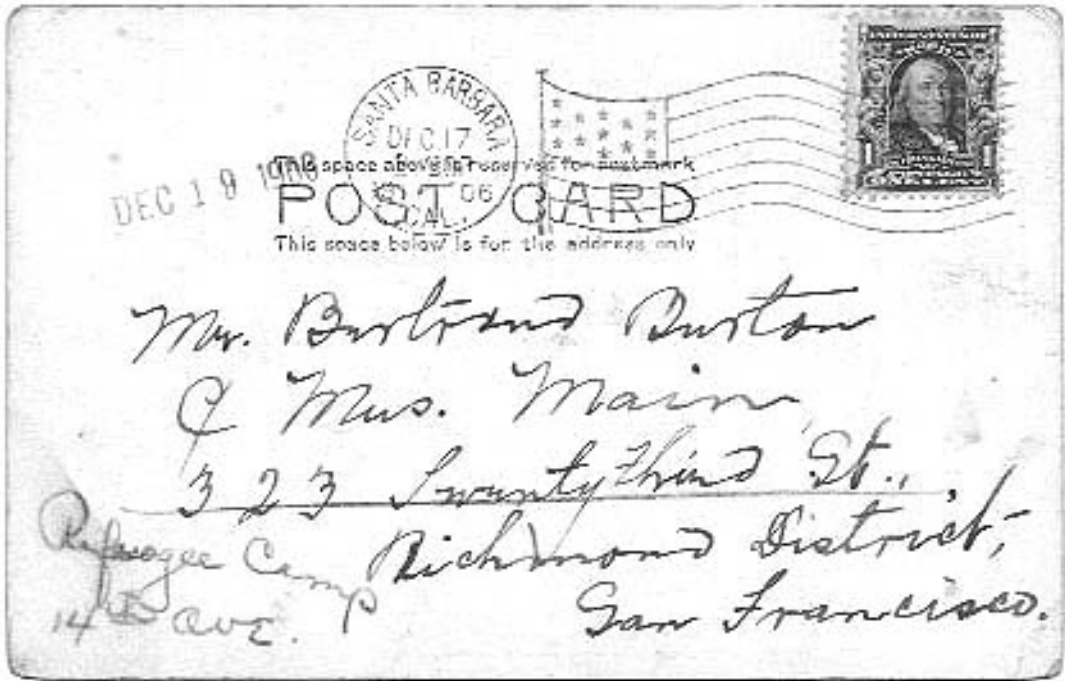 SANTA BARBARA
DEC 17
06
CAL.
DEC 19 1906
This space above is reserved for postmark
POST CARD
This space below is for the address only
Mr. Bertrand Burton
℅ Mrs. Main,
323 Twenty third St.,
Richmond District,
San Francisco.
Refuogee Camp
14th ave.
1 1